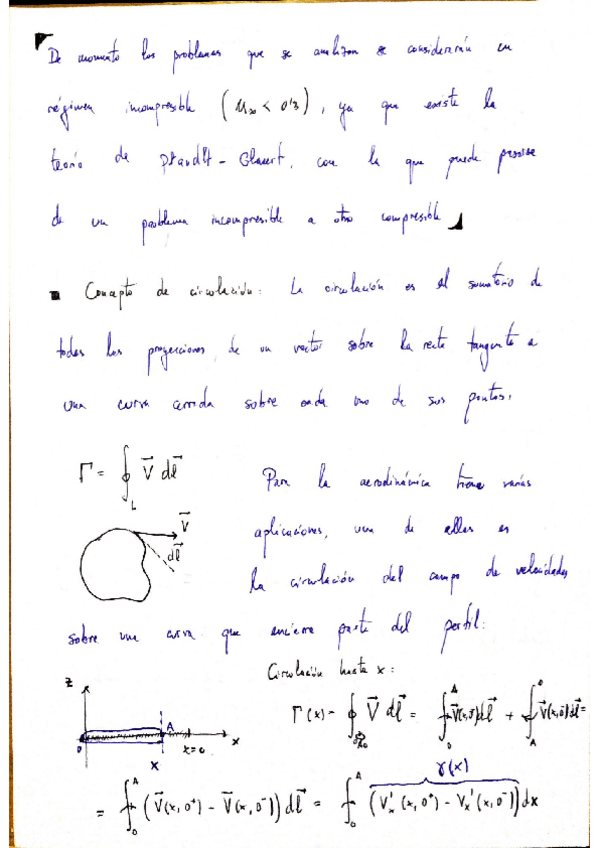 De momento los problemas que se analizan se considerarán en
régimen incompresible (M∞ < 0'3), ya que existe la
teoría de Prandtl-Glauert, con la que puede pasarse
de un problema incompresible a otro compresible
Concepto de circulación: La circulación es el sumatorio de
todas las proyecciones de un vector sobre la recta tangente a
una curva cerrada sobre cada uno de sus puntos.
Γ = ∮_L V⃗ dl⃗
Para la aerodinámica tiene varias
V⃗
aplicaciones, una de ellas es
dl⃗
la circulación del campo de velocidades
sobre una curva que encierra parte del perfil:
Circulación hasta x:
z
A
0
x
x=c
x
Γ(x) = ∮ V⃗ dl⃗ = ∫_0^A V⃗(x,0⁺)dl⃗ + ∫_A^0 V⃗(x,0⁻)dl⃗ =
γ(x)
= ∫_0^A (V⃗(x,0⁺) - V⃗(x,0⁻)) dl⃗ = ∫_0^A (V'ₓ(x,0⁺) - Vₓ'(x,0⁻)) dx